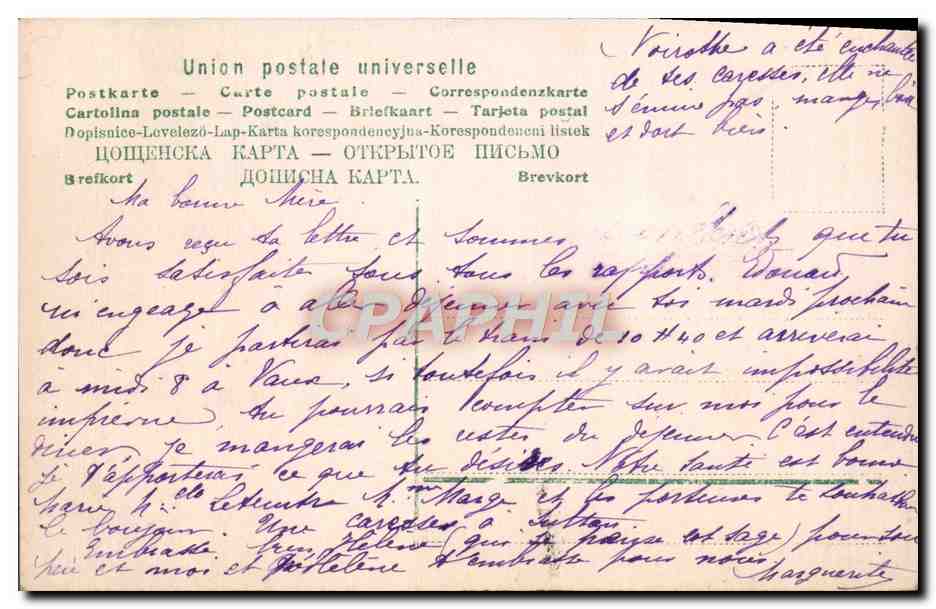 Union postale universelle
Postkarte — Carte postale — Correspondenzkarte
Cartolina postale — Postcard — Briefkaart — Tarjeta postal
Dopisnice-Levelező-Lap-Karta korespondencyjna-Korespondencni listek
ЦОЩЕНСКА КАРТА — ОТКРЫТОЕ ПИСЬМО
Brefkort ДОПИСНА КАРТА. Brevkort
a été enchantée
de ses caresses, elle ne
s'émeue pas, mange bien
et dort bien.
Ma bonne Mère.
Avons reçu ta lettre et sommes que tu
sois satisfaite sous tous les rapports. Edouard
m'engeage à aller déjeuner avec toi mardi prochain
donc je partirai par le train de 10 H 40 et arriverai
à midi 8 à Vaux, si toutefois il y avait impossibilité
imprévue, tu pourrais compter sur moi pour le
diner, je mangerai les restes du dejeuner. C'est entendu
je t'apporterai ce que tu désires. Notre santé est bonne
Marge et les te
le bonjour. Une caresse à Sultan.
Embrasse bien Hélène (que je pense est sage) pour son
père et moi et t'embrasse pour nous.
Marguerite
CPAPHIL